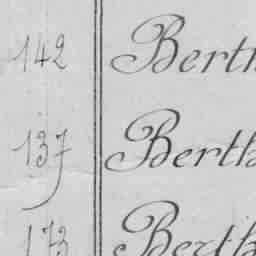 142 Berth
137 Berth
173 Berth